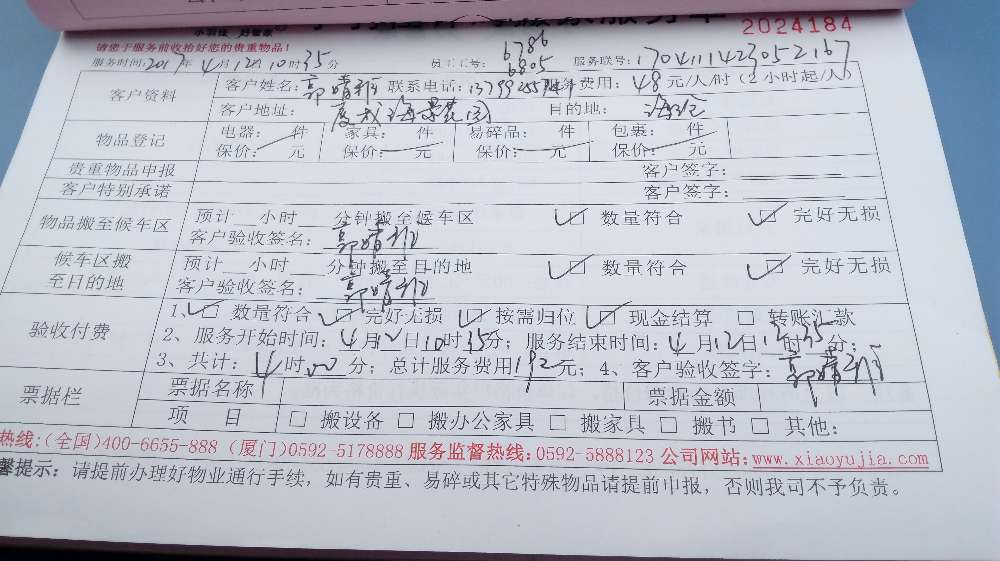 2024184
请您于服务前收拾好您的贵重物品!
服务时间:2017年4月12日10时35分 员工工号: 6786 6805 服务联号:170411142305 2167
客户资料 客户姓名: 郭晴 联系电话: 服务费用: 48 元/人/时 (2小时起/人)
客户地址: 海景花园 目的地: 海沧
物品登记 电器: 件 家具: 件 易碎品: 件 包裹: 件
保价: 元 保价: 元 保价: 元 保价: 元
贵重物品申报 客户签字:
客户特别承诺 客户签字:
物品搬至候车区 预计 小时 分钟搬至候车区 ☑ 数量符合 ☑ 完好无损
客户验收签名: 郭晴
候车区搬至目的地 预计 小时 分钟搬至目的地 ☑ 数量符合 ☑ 完好无损
客户验收签名: 郭晴
验收付费 1、☑ 数量符合 ☑ 完好无损 ☑ 按需归位 ☑ 现金结算 □ 转账汇款
2、服务开始时间: 4月12日10时35分; 服务结束时间: 4月12日 时35分;
3、共计: 4时00分; 总计服务费用192元; 4、客户验收签字: 郭晴
票据栏 票据名称 票据金额
项 目 □ 搬设备 □ 搬办公家具 □ 搬家具 □ 搬书 □ 其他:
热线:(全国)400-6655-888 (厦门)0592-5178888 服务监督热线:0592-5888123 公司网站:www.xiaoyujia.com
馨提示: 请提前办理好物业通行手续, 如有贵重、易碎或其它特殊物品请提前申报, 否则我司不予负责。